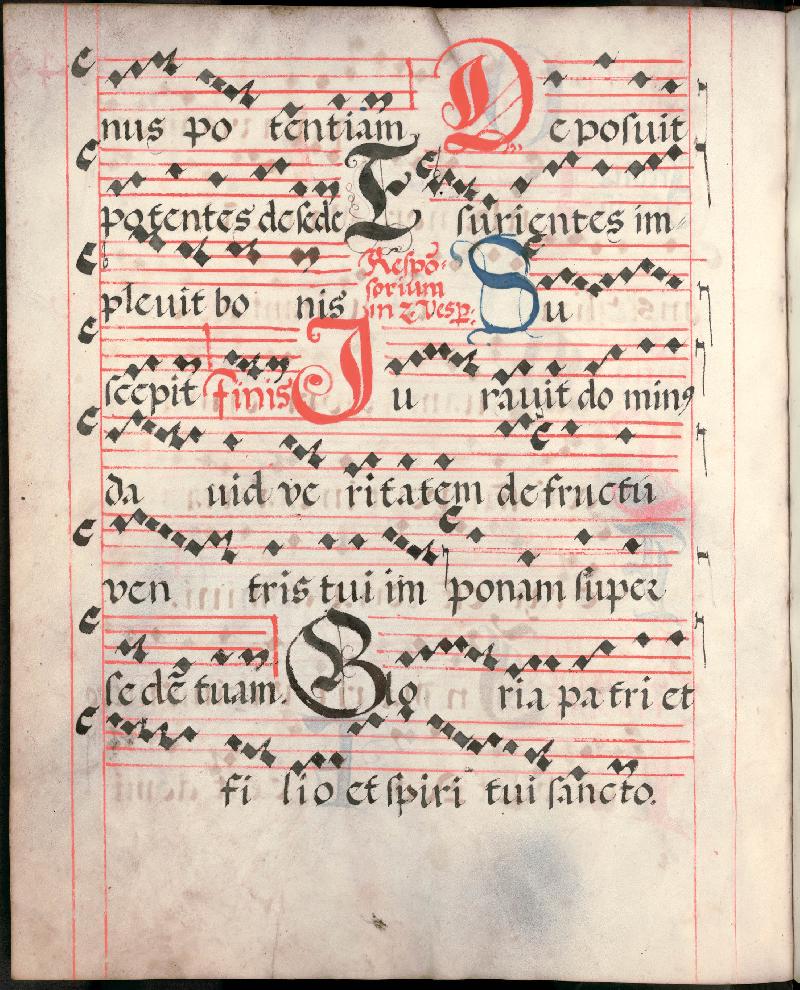 nus po tentiam Deposuit
potentes de sede Esurientes im
pleuit bo nis Respō- sorium in 2 Vesp. Su
scepit Finis Iu rauit do minꝰ
da uid ve ritatem de fructu
ven tris tui im ponam super
sedē tuam. Glo ria patri et
fi lio et spiri tui sancto.